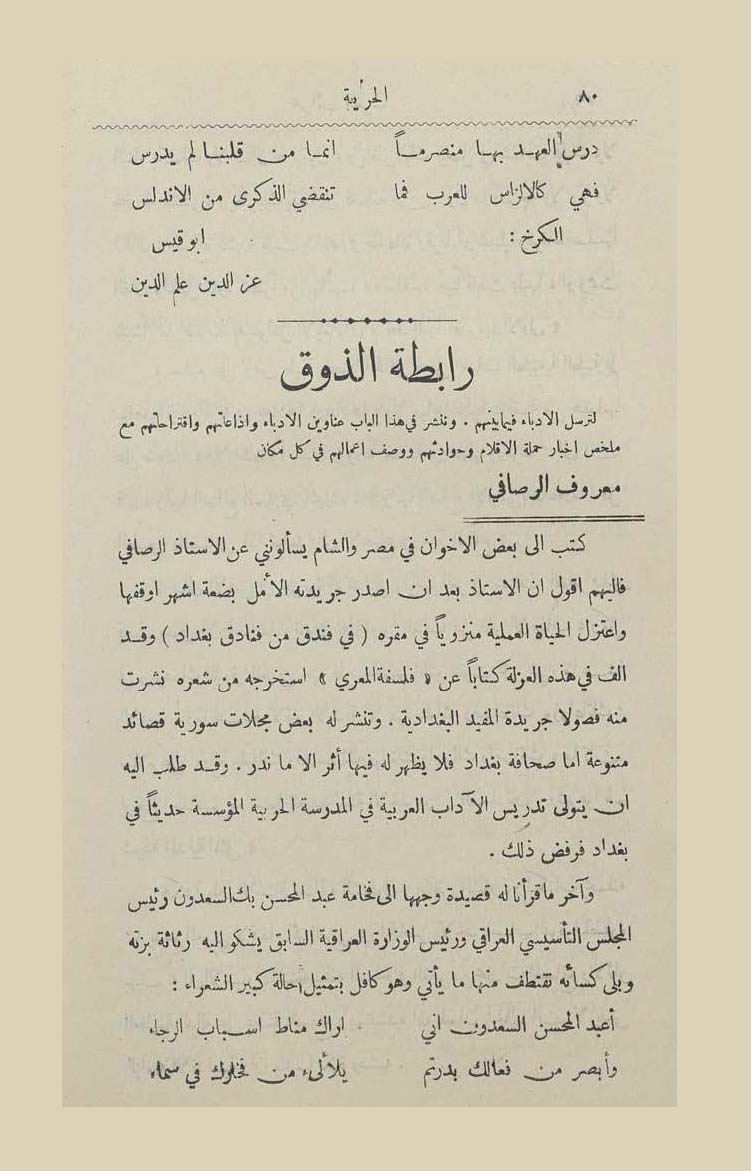 ٨٠ الحرية
درس العهد بها منصرماً انما من قلبنا لم يدرس
فهي كالالزاس للعرب فما تنقضي الذكرى من الاندلس
الكرخ : ابو قيس
عز الدين علم الدين
رابطة الذوق
لترسل الادباء فيما بينهم . وننشر في هذا الباب عناوين الادباء واذاعاتهم واقتراحاتهم مع
ملخص اخبار حملة الاقلام وحوادثهم ووصف اعمالهم في كل مكان
معروف الرصافي
كتب الى بعض الاخوان في مصر والشام يسألونني عن الاستاذ الرصافي
فاليهم اقول ان الاستاذ بعد ان اصدر جريدته الأمل بضعة اشهر اوقفها
واعتزل الحياة العملية منزوياً في مقره ( في فندق من فنادق بغداد ) وقد
الف في هذه العزلة كتاباً عن « فلسفة المعري » استخرجه من شعره نشرت
منه فصولا جريدة المفيد البغدادية . وتنشر له بعض مجلات سورية قصائد
متنوعة اما صحافة بغداد فلا يظهر له فيها أثر الا ما ندر . وقد طلب اليه
ان يتولى تدريس الآداب العربية في المدرسة الحربية المؤسسة حديثاً في
بغداد فرفض ذلك .
وآخر ما قرأنا له قصيدة وجهها الى فخامة عبد المحسن بك السعدون رئيس
المجلس التأسيسي العراقي ورئيس الوزارة العراقية السابق يشكو اليه رثاثة بزته
وبلى كسائه نقتطف منها ما يأتي وهو كافل بتمثيل حالة كبير الشعراء :
أعبد المحسن السعدون اني اراك مناط اسباب الرجاء
وأبصر من فعالك بدرتم يلألىء من فخارك في سماء